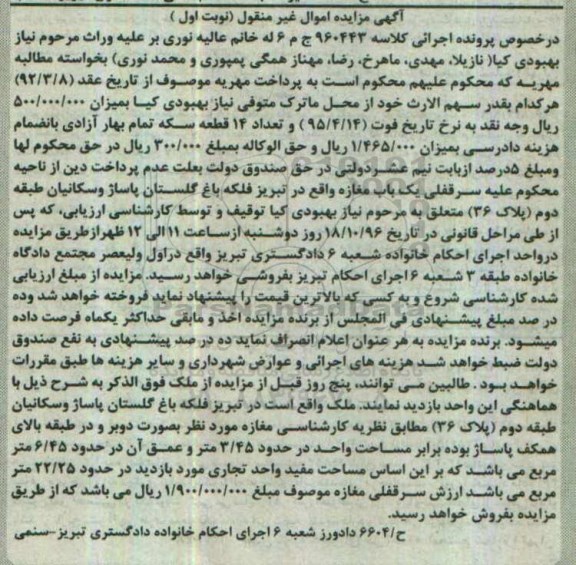 آگهی مزایده اموال غیر منقول (نوبت اول )
درخصوص پرونده اجرائی کلاسه ۹۶۰۴۴۳ ج م ۶ له خانم عالیه نوری بر علیه وراث مرحوم نیاز
بهبودی کیا( نازیلا، مهدی، ماهرخ، رضا، مهناز همگی پمپوری و محمد نوری) بخواسته مطالبه
مهریه که محکوم علیهم محکوم است به پرداخت مهریه موصوف از تاریخ عقد (۹۲/۳/۸)
هرکدام بقدر سهم الارث خود از محل ماترک متوفی نیاز بهبودی کیا بمیزان ۵۰۰/۰۰۰/۰۰۰
ریال وجه نقد به نرخ تاریخ فوت (۹۵/۴/۱۴ ) و تعداد ۱۴ قطعه سکه تمام بهار آزادی بانضمام
هزینه دادرسی بمیزان ۱/۴۶۵/۰۰۰ ریال و حق الوکاله بمبلغ ۳۰۰/۰۰۰ ریال در حق محکوم لها
ومبلغ ۵درصد ازبابت نیم عشردولتی در حق صندوق دولت بعلت عدم پرداخت دین از ناحیه
محکوم علیه سرقفلی یک باب مغازه واقع در تبریز فلکه باغ گلستان پاساژ وسکانیان طبقه
دوم (پلاک ۳۶) متعلق به مرحوم نیاز بهبودی کیا توقیف و توسط کارشناسی ارزیابی، که پس
از طی مراحل قانونی در تاریخ ۱۸/۱۰/۹۶ روز دوشنبه ازساعت ۱۱ الی ۱۲ ظهرازطریق مزایده
درواحد اجرای احکام خانواده شعبه ۶ دادگستری تبریز واقع دراول ولیعصر مجتمع دادگاه
خانواده طبقه ۳ شعبه ۶ اجرای احکام تبریز بفروشی خواهد رسید. مزایده از مبلغ ارزیابی
شده کارشناسی شروع و به کسی که بالاترین قیمت را پیشنهاد نماید فروخته خواهد شد وده
در صد مبلغ پیشنهادی فی المجلس از برنده مزایده اخذ و مابقی حداکثر یکماه فرصت داده
میشود. برنده مزایده به هر عنوان اعلام انصراف نماید ده در صد پیشنهادی به نفع صندوق
دولت ضبط خواهد شد هزینه های اجرائی و عوارض شهرداری و سایر هزینه ها طبق مقررات
خواهد بود . طالبین می توانند، پنج روز قبل از مزایده از ملک فوق الذکر به شرح ذیل با
هماهنگی این واحد بازدید نمایند. ملک واقع است در تبریز فلکه باغ گلستان پاساژ وسکانیان
طبقه دوم (پلاک ۳۶) مطابق نظریه کارشناسی مغازه مورد نظر بصورت دوبر و در طبقه بالای
همکف پاساژ بوده برابر مساحت واحد در حدود ۳/۴۵ متر و عمق آن در حدود ۶/۴۵ متر
مربع می باشد که بر این اساس مساحت مفید واحد تجاری مورد بازدید در حدود ۲۲/۲۵ متر
مربع می باشد ارزش سرقفلی مغازه موصوف مبلغ ۱/۹۰۰/۰۰۰/۰۰۰ ریال می باشد که از طریق
مزایده بفروش خواهد رسید.
ح/۶۶۰۴ دادورز شعبه ۶ اجرای احکام خانواده دادگستری تبریز-سنمی